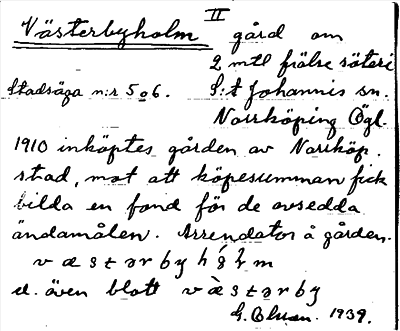 II
Västerbyholm gård om
2 mtl frälse säteri
Stadsäga n:r 5 o 6. S:t Johannis sn.
Norrköping Ögl.
1910 inköptes gården av Norrköp.
stad, mot att köpesumman fick
bilda en fond för de avsedda
ändamålen. Arrendator å gården.
v æ s t ər b y h
d. även blott v æ̀ s t ə r b y
1939.